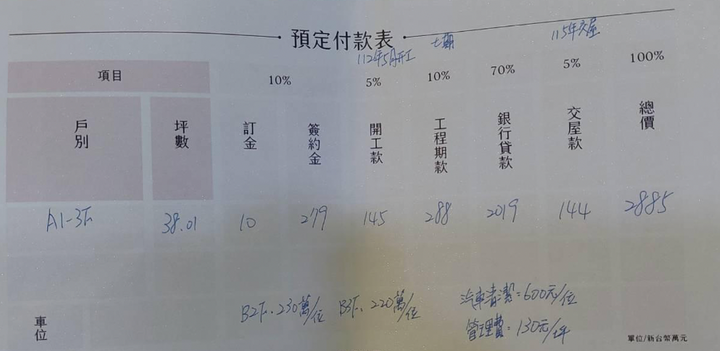 預定付款表
112年5月開工 七期 115年交屋
項目 10% 5% 10% 70% 5% 100%
戶別 坪數 訂金 簽約金 開工款 工程期款 銀行貸款 交屋款 總價
A1-3F 38.01 10 279 145 288 2019 144 2885
車位 B2F、230萬/位 B3F、220萬/位 汽車清潔=600元/位
管理費=130元/坪
單位/新台幣萬元